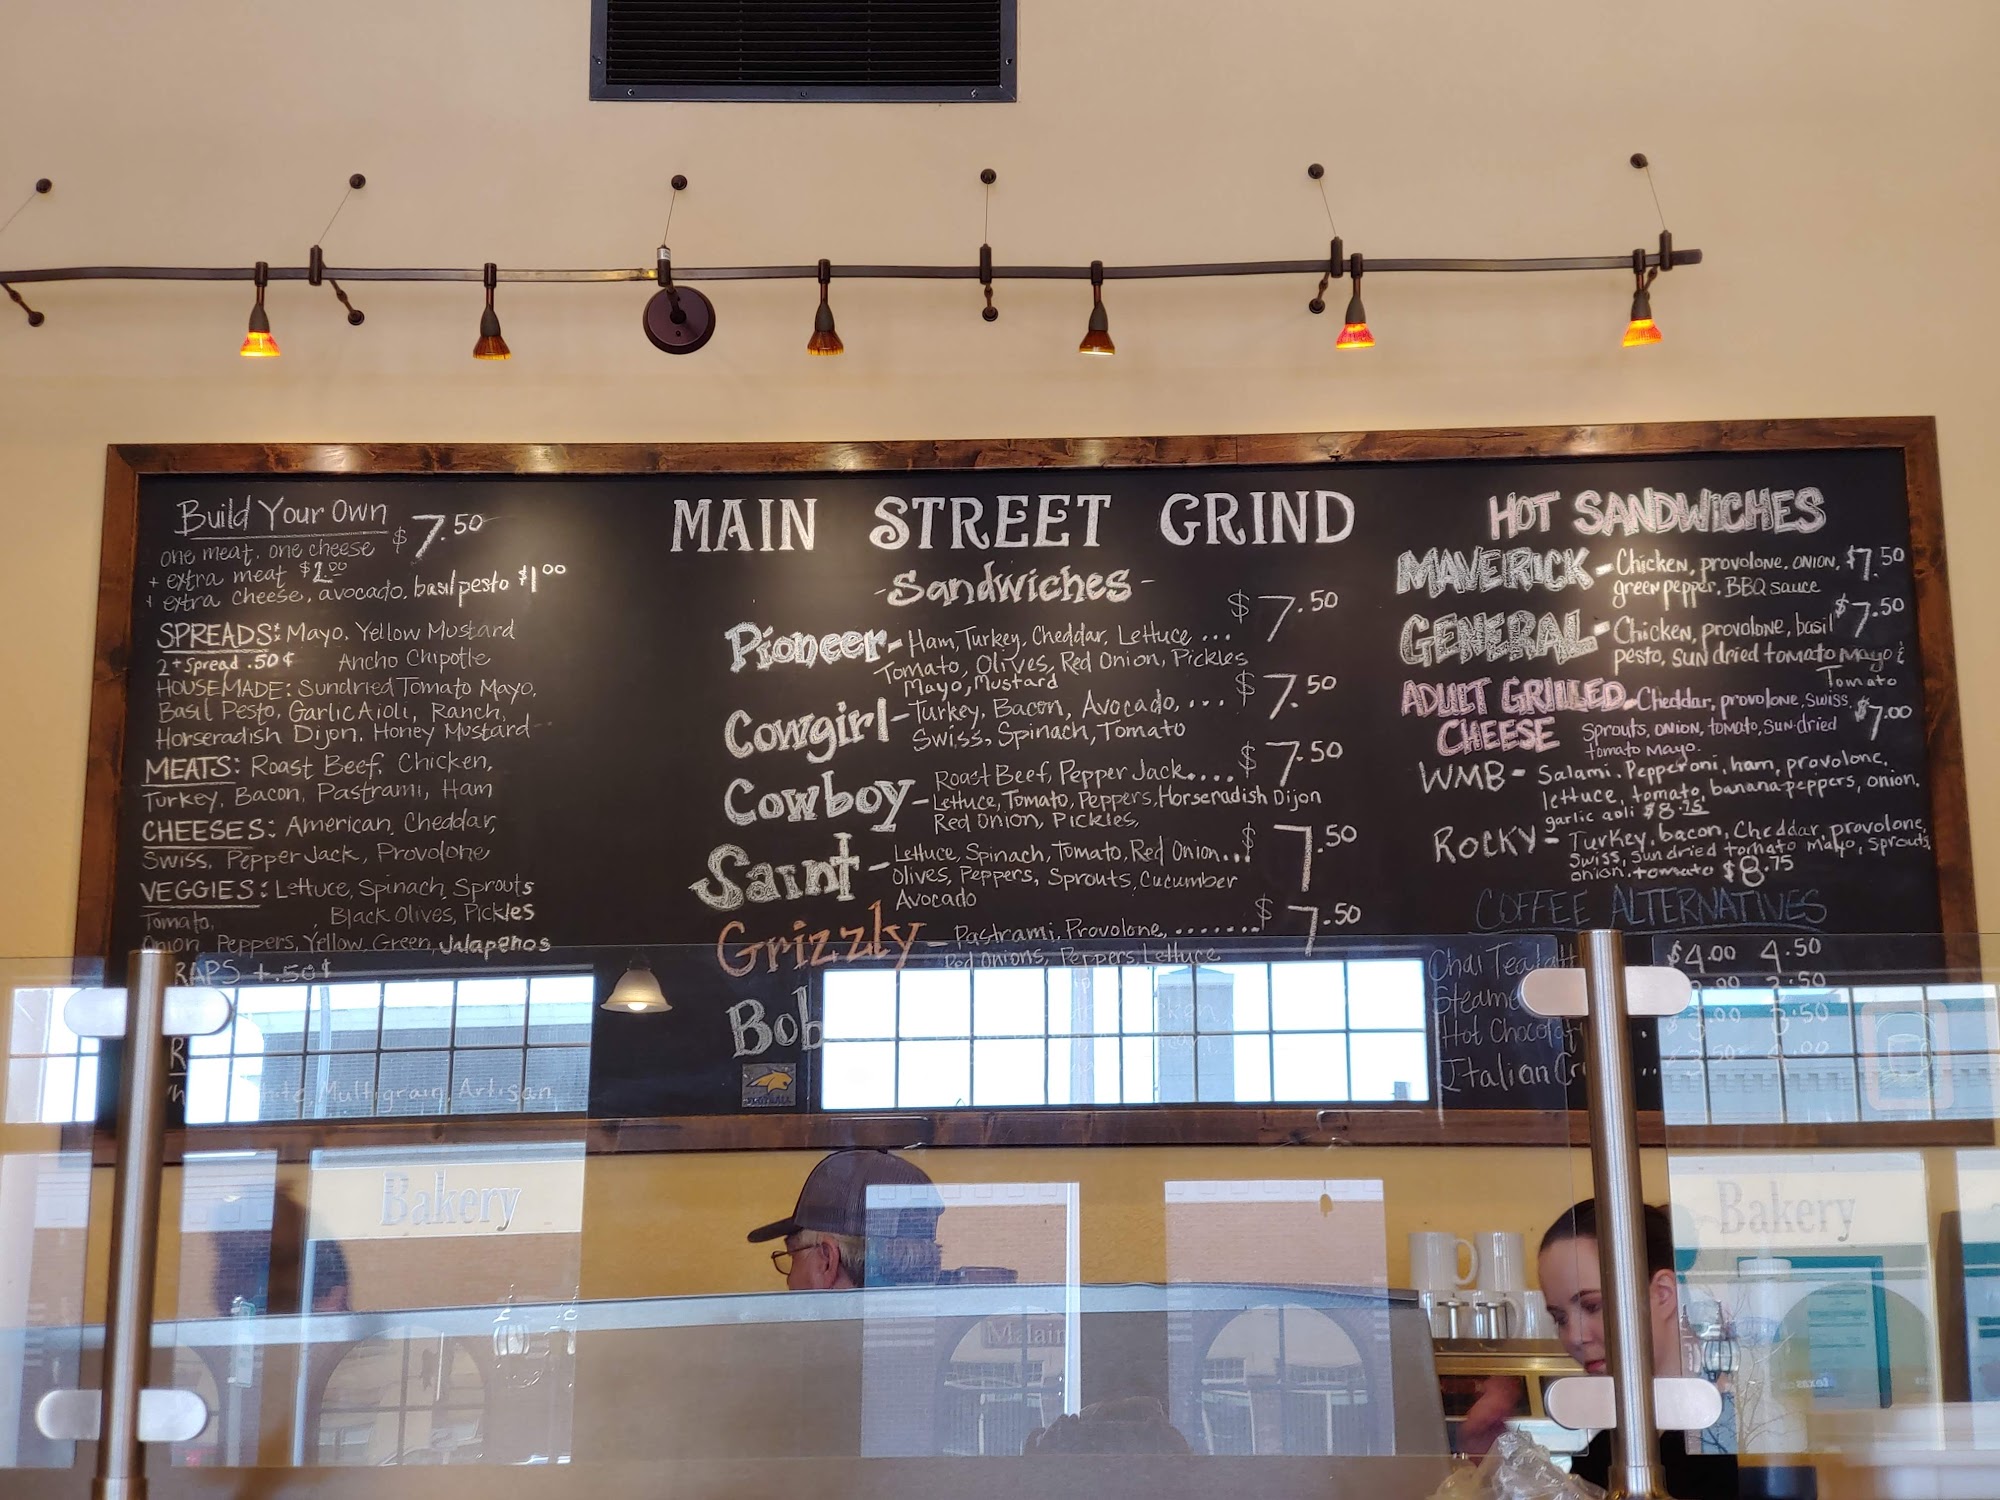 Build Your Own
$7.50
one meat, one cheese
+ extra meat $2.00
+ extra cheese, avocado, basil pesto $1.00
SPREADS: Mayo, Yellow Mustard
2+ Spread .50¢ Ancho Chipotle
HOUSEMADE: Sundried Tomato Mayo,
Basil Pesto, Garlic Aioli, Ranch,
Horseradish Dijon, Honey Mustard
MEATS: Roast Beef, Chicken,
Turkey, Bacon, Pastrami, Ham
CHEESES: American, Cheddar,
Swiss, Pepper Jack, Provolone
VEGGIES: Lettuce, Spinach, Sprouts
Tomato, Black Olives, Pickles
Onion, Peppers, Yellow, Green, Jalapenos
RAPS +.50¢
Multigrain, Artisan
MAIN STREET GRIND
-Sandwiches-
Pioneer- Ham, Turkey, Cheddar, Lettuce ... $7.50
Tomato, Olives, Red Onion, Pickles
Mayo, Mustard
Cowgirl- Turkey, Bacon, Avocado, ... $7.50
Swiss, Spinach, Tomato
Cowboy- Roast Beef, Pepper Jack .... $7.50
Lettuce, Tomato, Peppers, Horseradish Dijon
Red Onion, Pickles,
Saint- Lettuce, Spinach, Tomato, Red Onion... $7.50
Olives, Peppers, Sprouts, Cucumber
Avocado
Grizzly- Pastrami, Provolone, ........ $7.50
Red Onions, Peppers, Lettuce
Bob
HOT SANDWICHES
MAVERICK- Chicken, provolone, onion, $7.50
green pepper, BBQ sauce
GENERAL- Chicken, provolone, basil $7.50
pesto, sun dried tomato mayo &
Tomato
ADULT GRILLED CHEESE- Cheddar, provolone, swiss, $7.00
sprouts, onion, tomato, sun-dried
tomato mayo.
WMB- Salami, Pepperoni, ham, provolone,
lettuce, tomato, banana peppers, onion,
garlic aoli $8.75
ROCKY- Turkey, bacon, Cheddar, provolone,
Swiss, sun dried tomato mayo, sprouts,
onion, tomato $8.75
COFFEE ALTERNATIVES
Chai Tea Latt $4.00 4.50
Steame 3.50
Hot Chocolat 3.00 3.50
Italian Cr .. 3.50 4.00
Bakery
Bakery